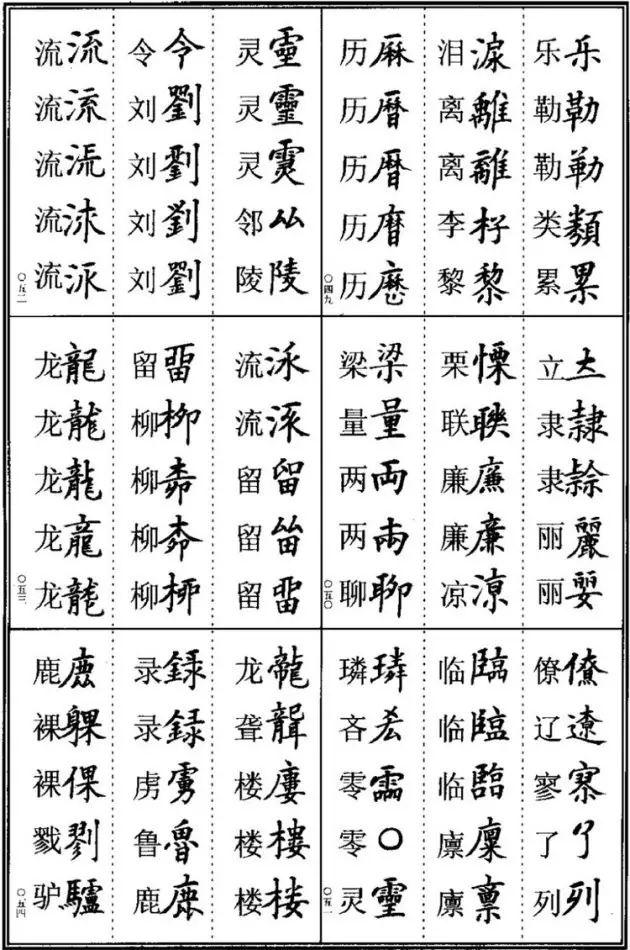 乐乐
勒勒
勒勒
类類
累累
泪淚
离離
离離
李杍
黎黎
历厤
历曆
历曆
历暦
历歷
〇四九
立立
隶隷
隶隸
丽麗
丽
栗慄
联聯
廉廉
廉廉
凉涼
梁梁
量量
两両
两兩
聊聊
〇五〇
僚僚
辽遼
寥寥
了了
列列
临臨
临臨
临臨
廪廩
廪稟
璘璘
吝
零霝
零〇
灵靈
〇五一
灵靈
灵靈
灵霊
邻厸
陵陵
令令
刘劉
刘劉
刘劉
刘劉
流流
流流
流流
流
流
〇五二
流
流
留留
留
留畱
留畱
柳柳
柳
柳
柳桺
龙龍
龙龍
龙龍
龙龍
龙龍
〇五三
龙龍
聋聾
楼廔
楼樓
楼楼
录録
录録
虏虜
鲁魯
鹿鹿
鹿鹿
裸躶
裸倮
戮剹
驴驢
〇五四